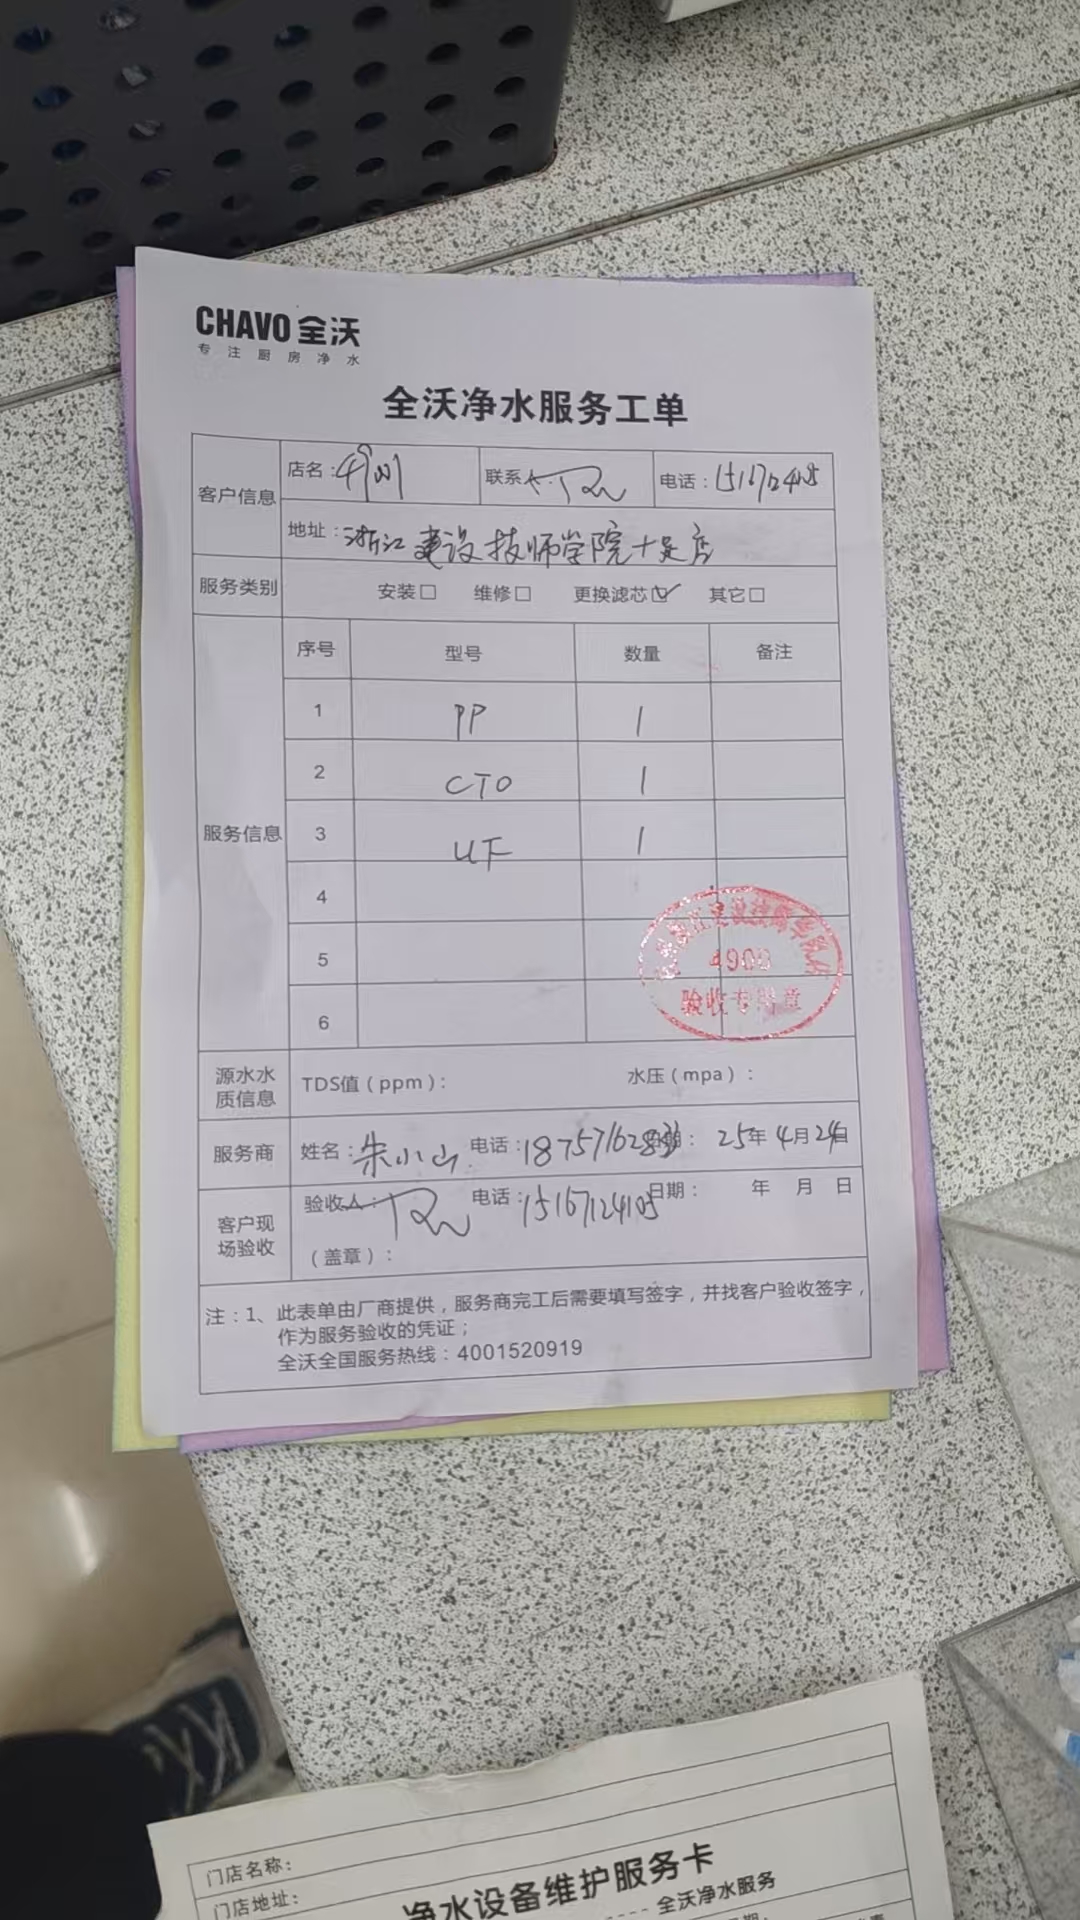 CHAVO 全沃
专注厨房净水
全沃净水服务工单
客户信息
店名：
联系人：
电话：15167124105
地址：浙江建设技师学院十足店
服务类别 安装□ 维修□ 更换滤芯☑ 其它□
服务信息
序号 型号 数量 备注
1 PP 1
2 CTO 1
3 UF 1
4
5
6
浙江建设技师学院
4900
验收专用章
源水水质信息 TDS值（ppm）： 水压（mpa）：
服务商 姓名：朱小山 电话：187571628 日期：25年4月24日
客户现场验收 验收人： 电话：15167124105 日期： 年 月 日
（盖章）：
注：1、此表单由厂商提供，服务商完工后需要填写签字，并找客户验收签字，
作为服务验收的凭证；
全沃全国服务热线：4001520919
门店名称：
门店地址：
净水设备维护服务卡
---- 全沃净水服务